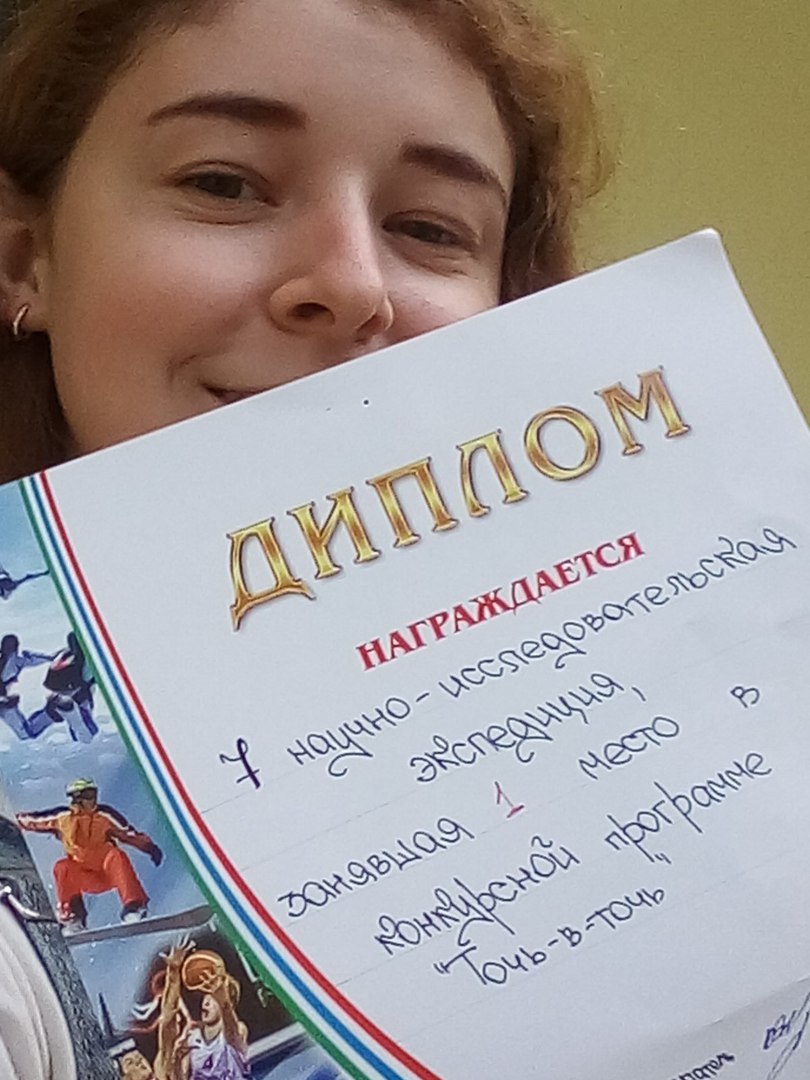 ДИПЛОМ
НАГРАЖДАЕТСЯ
7 научно-исследовательская
экспедиция,
занявшая 1 место в
конкурсной программе
"Точь-в-точь"